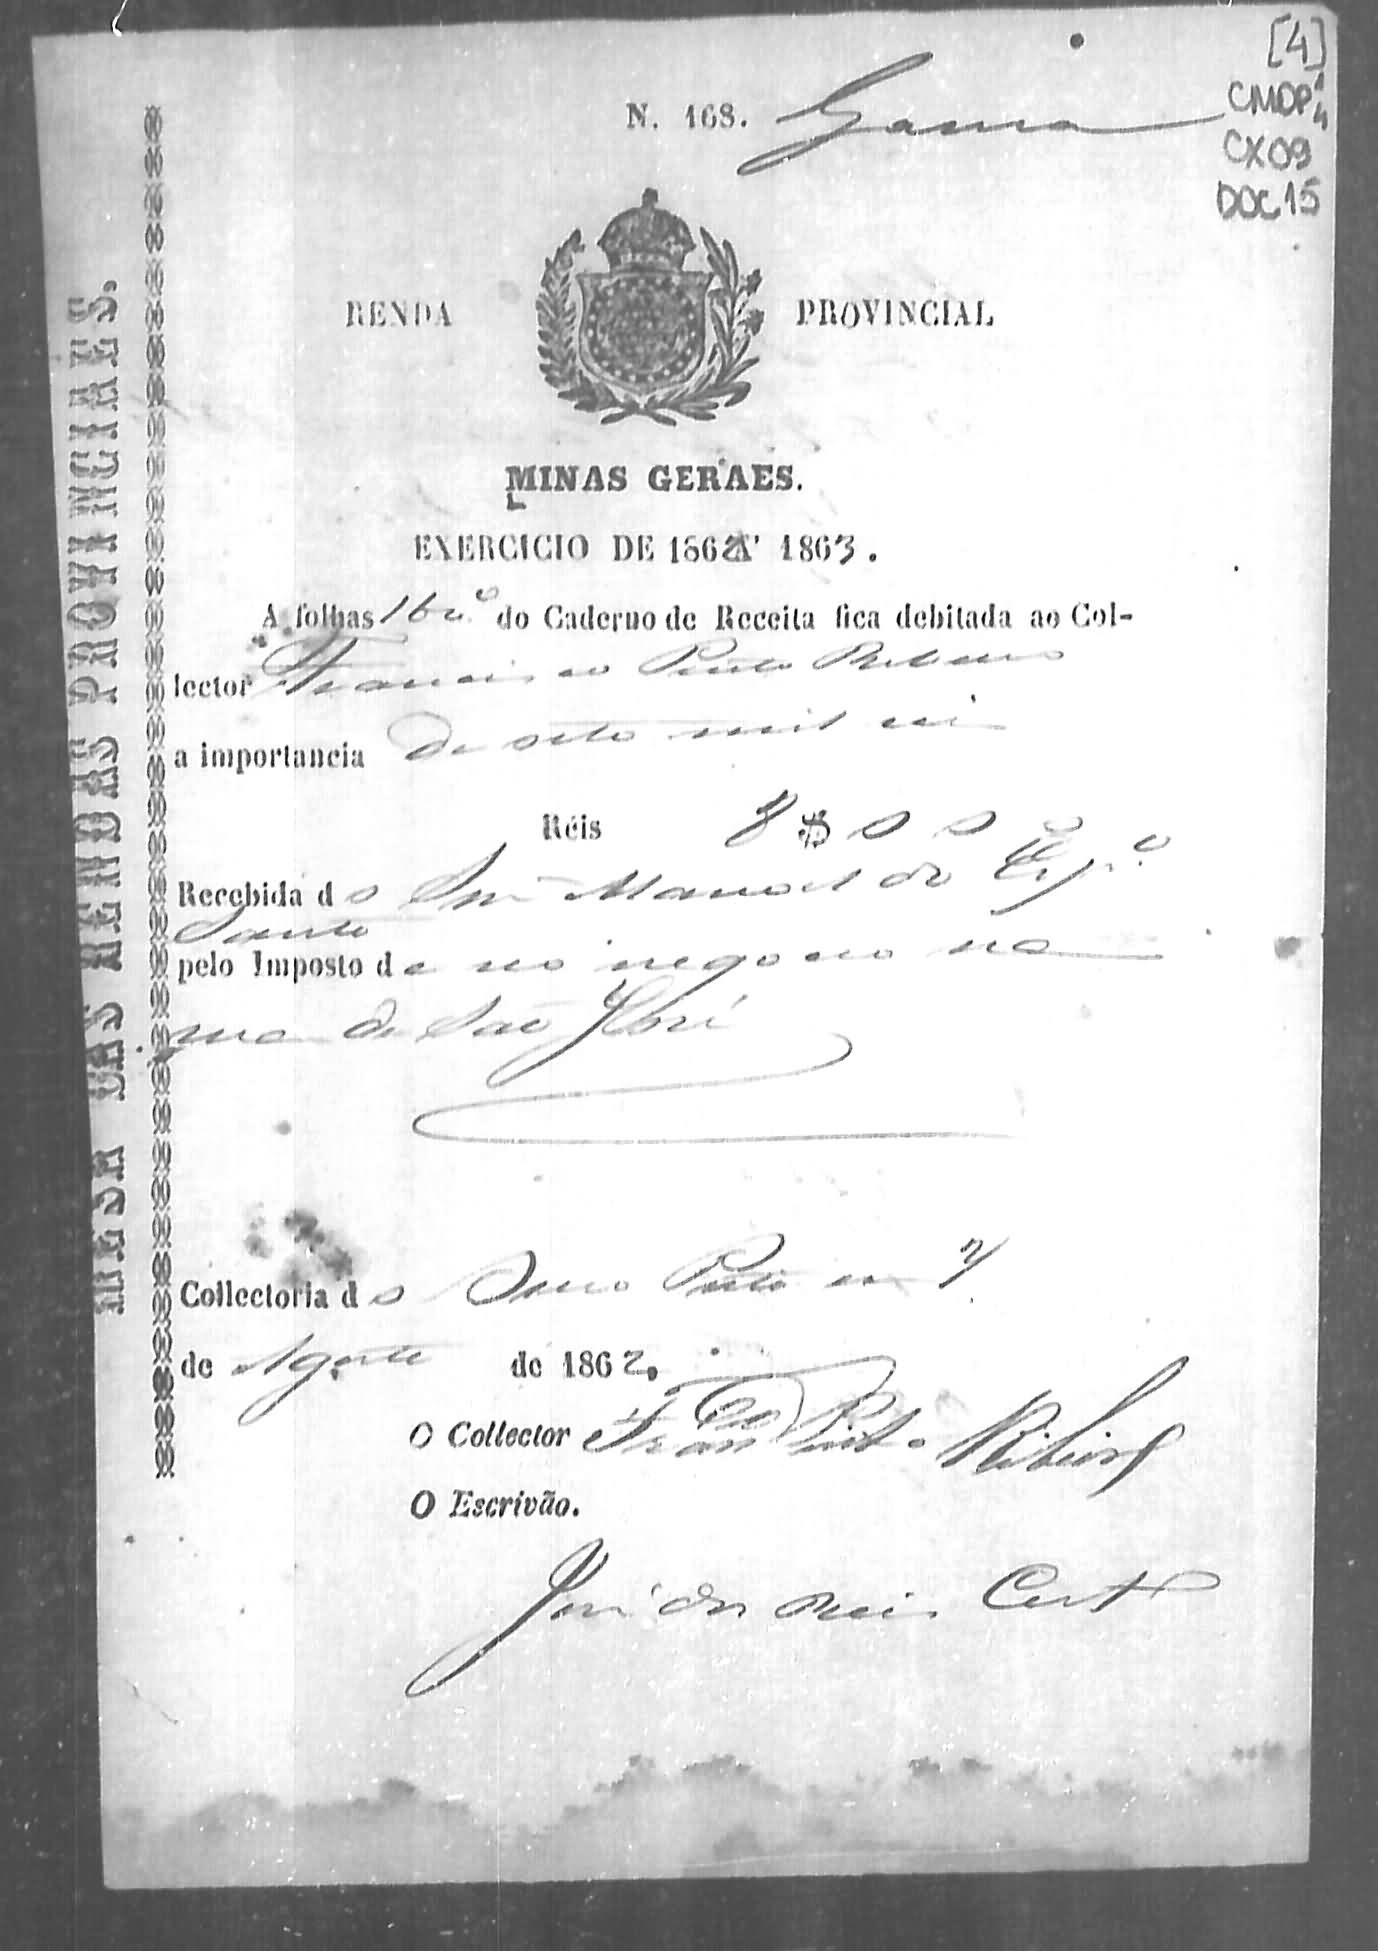 [4]
CMOP
CX09
DOC 15
N. 168. Gama
RENDA PROVINCIAL
MINAS GERAES.
EXERCICIO DE 1862 A 1863.
A folhas do Caderno de Receita fica debitada ao Col-
lector Francisco Pinto Ribeiro
a importancia de oito mil reis
Réis 8$000
Recebida do Snr Manoel do Esp.º
Santo
pelo Imposto de seo negocio na
rua de São José
Collectoria do Ouro Preto em
de Agosto de 1862.
O Collector Fran.co Pinto Ribeiro
O Escrivão.
José dos Reis
MESA DAS RENDAS PROVINCIAES.